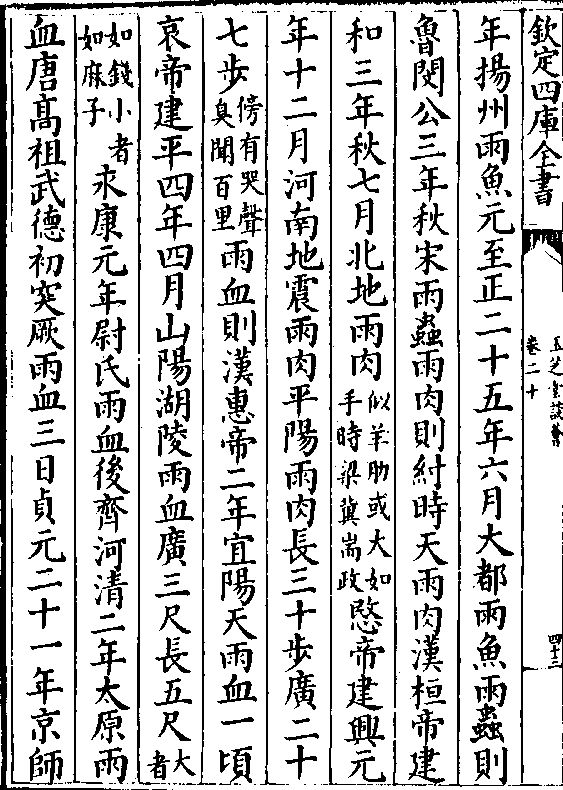 欽定四庫全書
玉芝堂談薈
卷二十
四十三
年揚州雨魚元至正二十五年六月大都雨魚雨螽則
魯閔公三年秋宋雨螽雨肉則紂時天雨肉漢桓帝建
和三年秋七月北地雨肉似羊肋或大如手時梁冀耑政愍帝建興元
年十二月河南地震雨肉平陽雨肉長三十步廣二十
七步傍有哭聲臭聞百里雨血則漢惠帝二年宜陽天雨血一頃
哀帝建平四年四月山陽湖陵雨血廣三尺長五尺大者
如錢小者如麻子永康元年尉氏雨血後齊河清二年太原雨
血唐髙祖武德初突厥雨血三日貞元二十一年京師